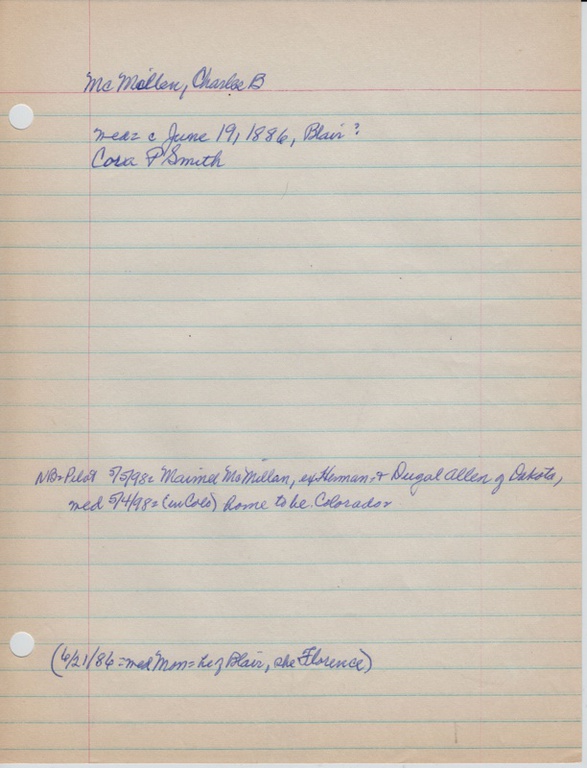 McMillen, Charles B
med = c June 19, 1886, Blair?
Cora P Smith
NB = Pilot 5/5/98 = Maimee McMillan, ex Herman, & Dugal Allen of Dakota,
med 5/4/98 = (in Colo) home to be Colorado
(6/21/86 = med Mon = he of Blair, she Florence)